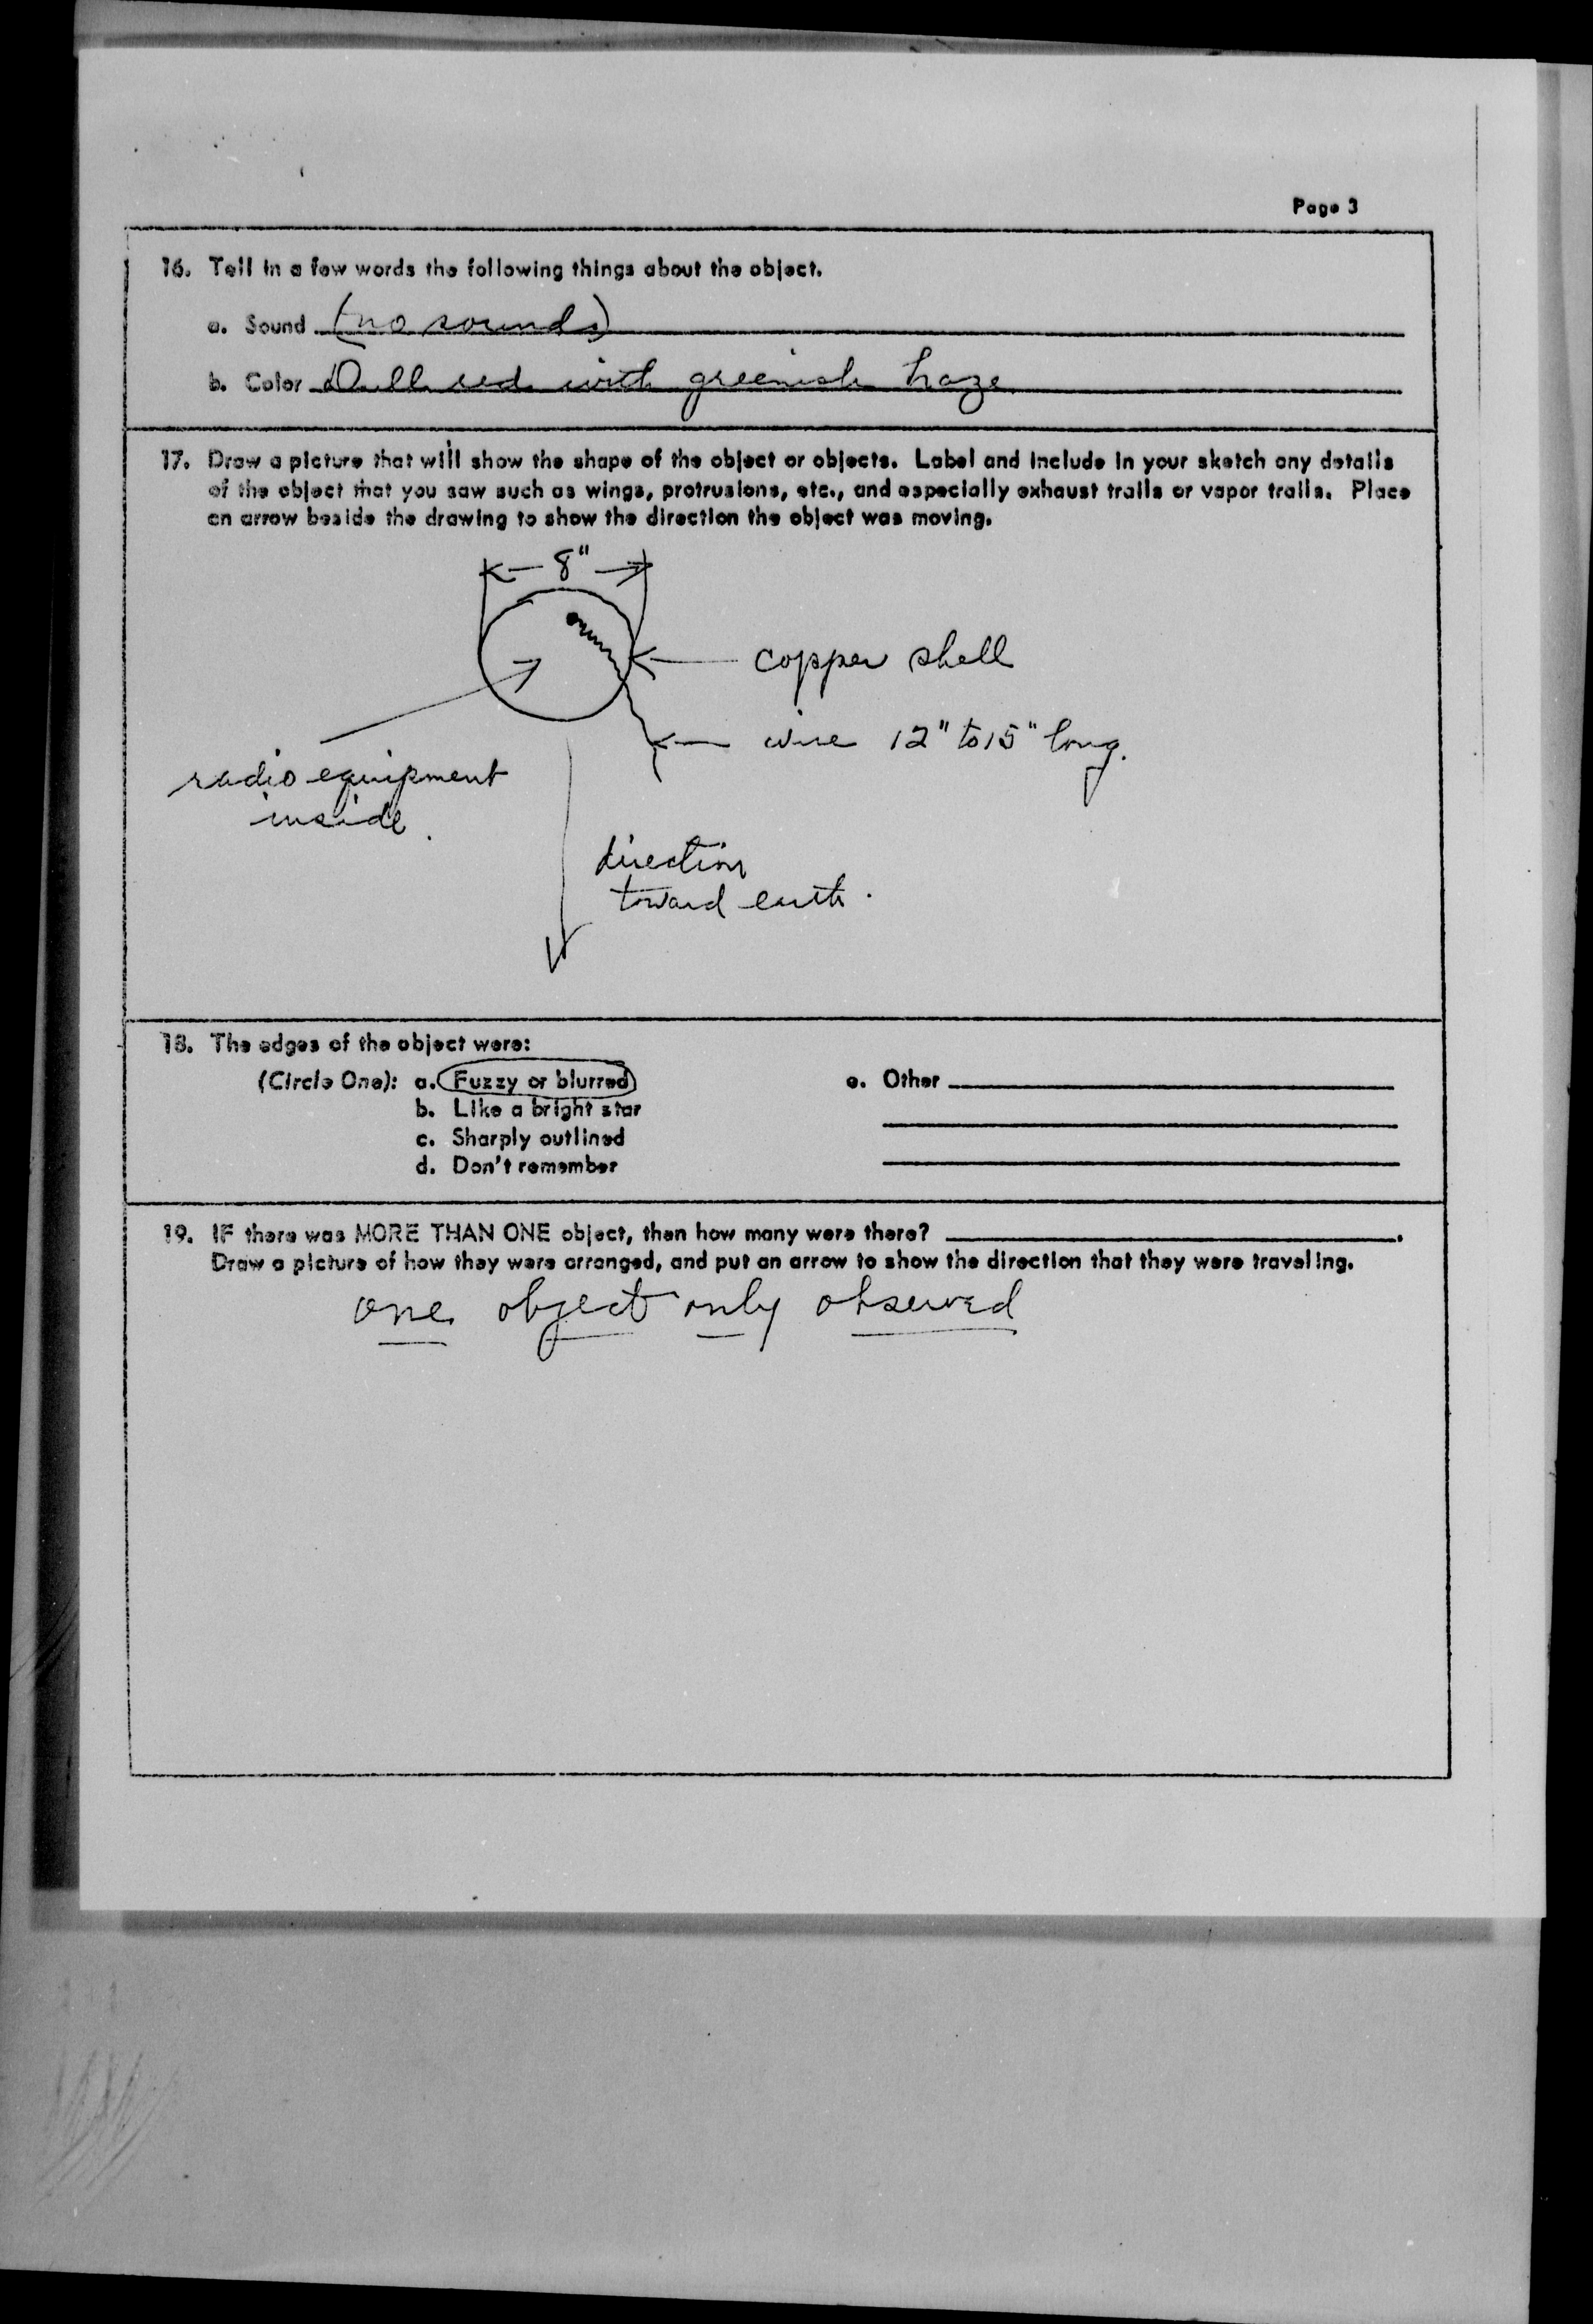 Page 3
16. Tell in a few words the following things about the object.
a. Sound (no sounds)
b. Color Dull red with greenish haze
17. Draw a picture that will show the shape of the object or objects. Label and include in your sketch any details
of the object that you saw such as wings, protrusions, etc., and especially exhaust trails or vapor trails. Place
an arrow beside the drawing to show the direction the object was moving.
8"
copper shell
wire 12" to 15" long.
radio equipment
inside.
direction
toward earth.
18. The edges of the object were:
(Circle One): a. Fuzzy or blurred
b. Like a bright star
c. Sharply outlined
d. Don't remember
e. Other
19. IF there was MORE THAN ONE object, then how many were there?
Draw a picture of how they were arranged, and put an arrow to show the direction that they were traveling.
one object only observed